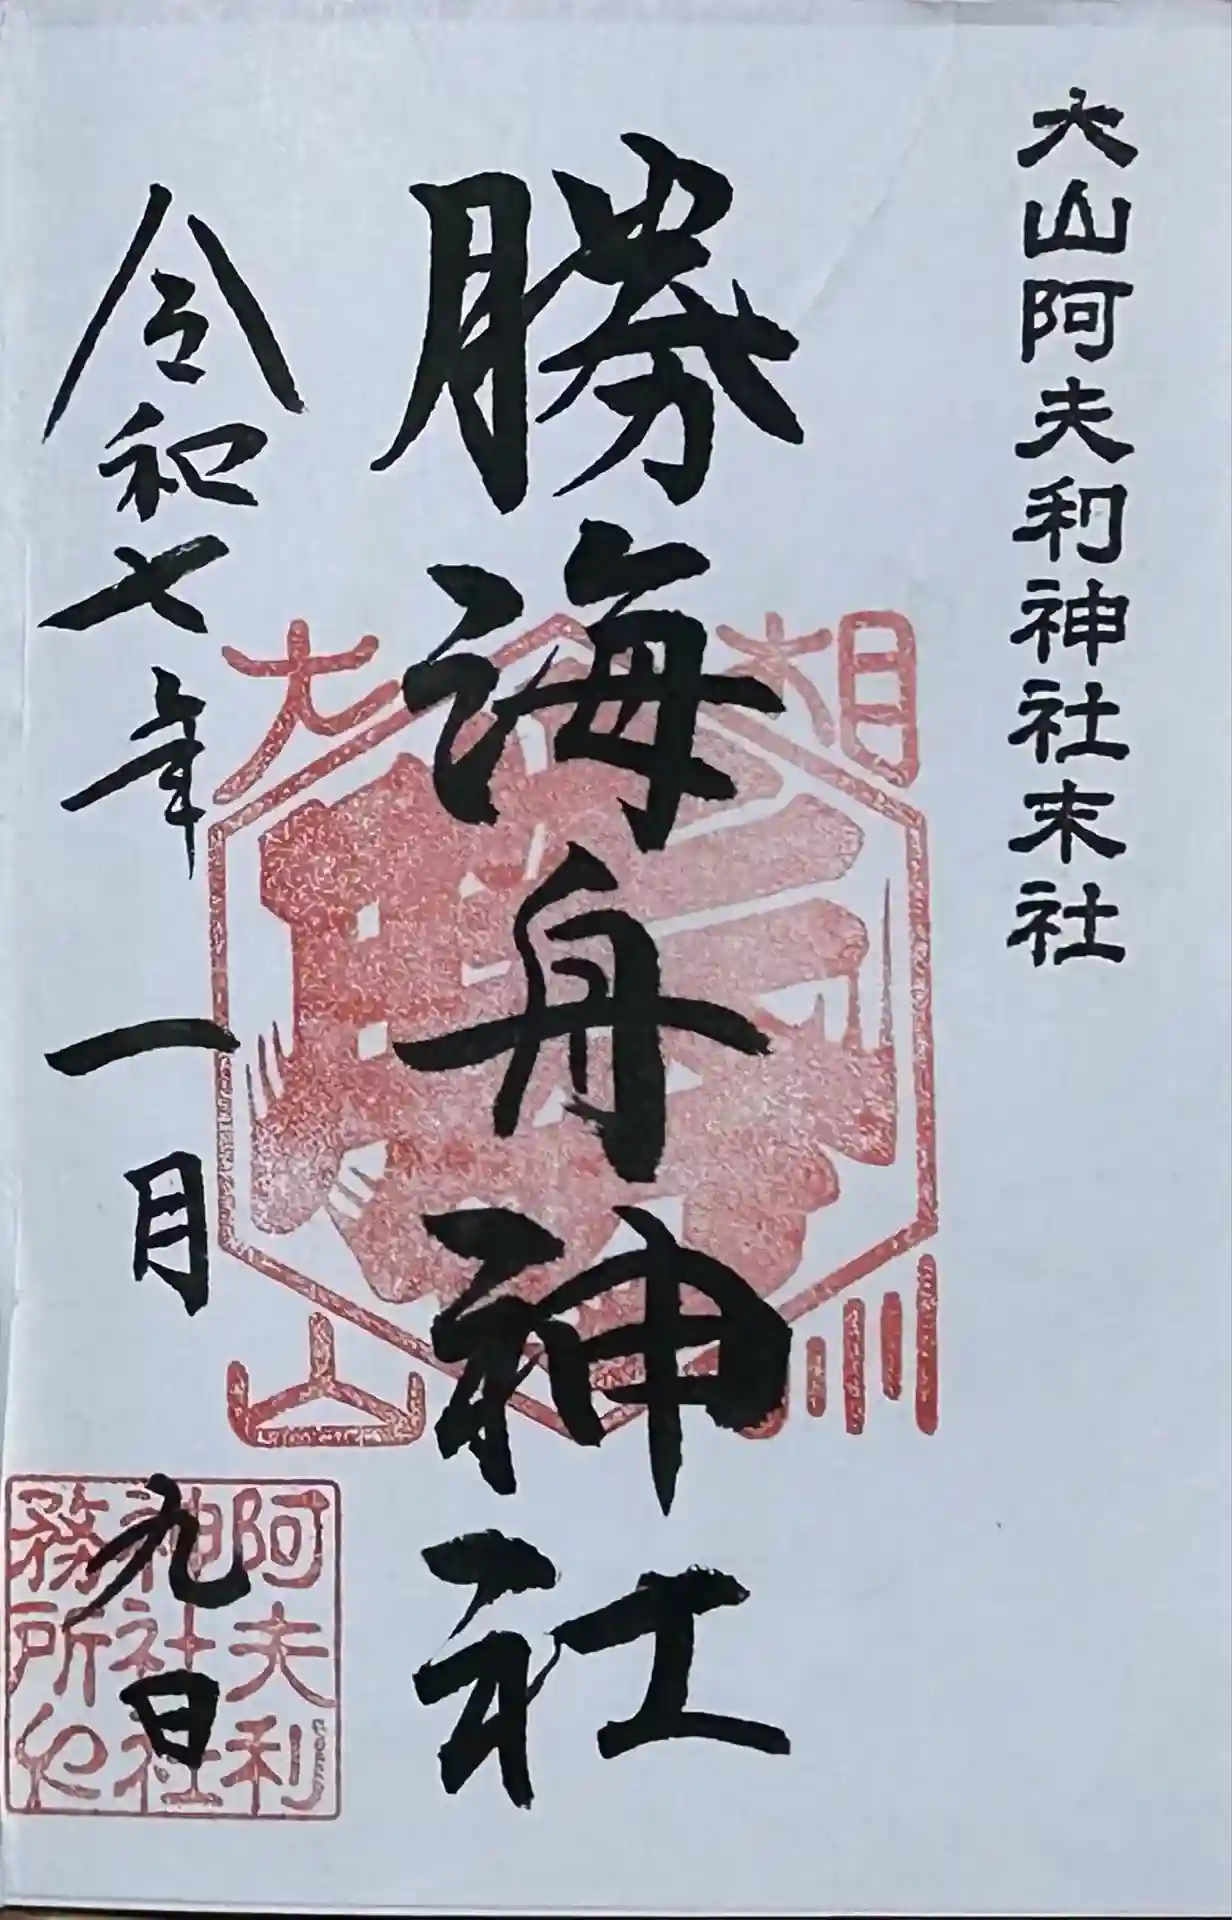 大山阿夫利神社末社
勝海舟神社
令和七年一月九日
相州
大山
阿夫利
神社社
務所印